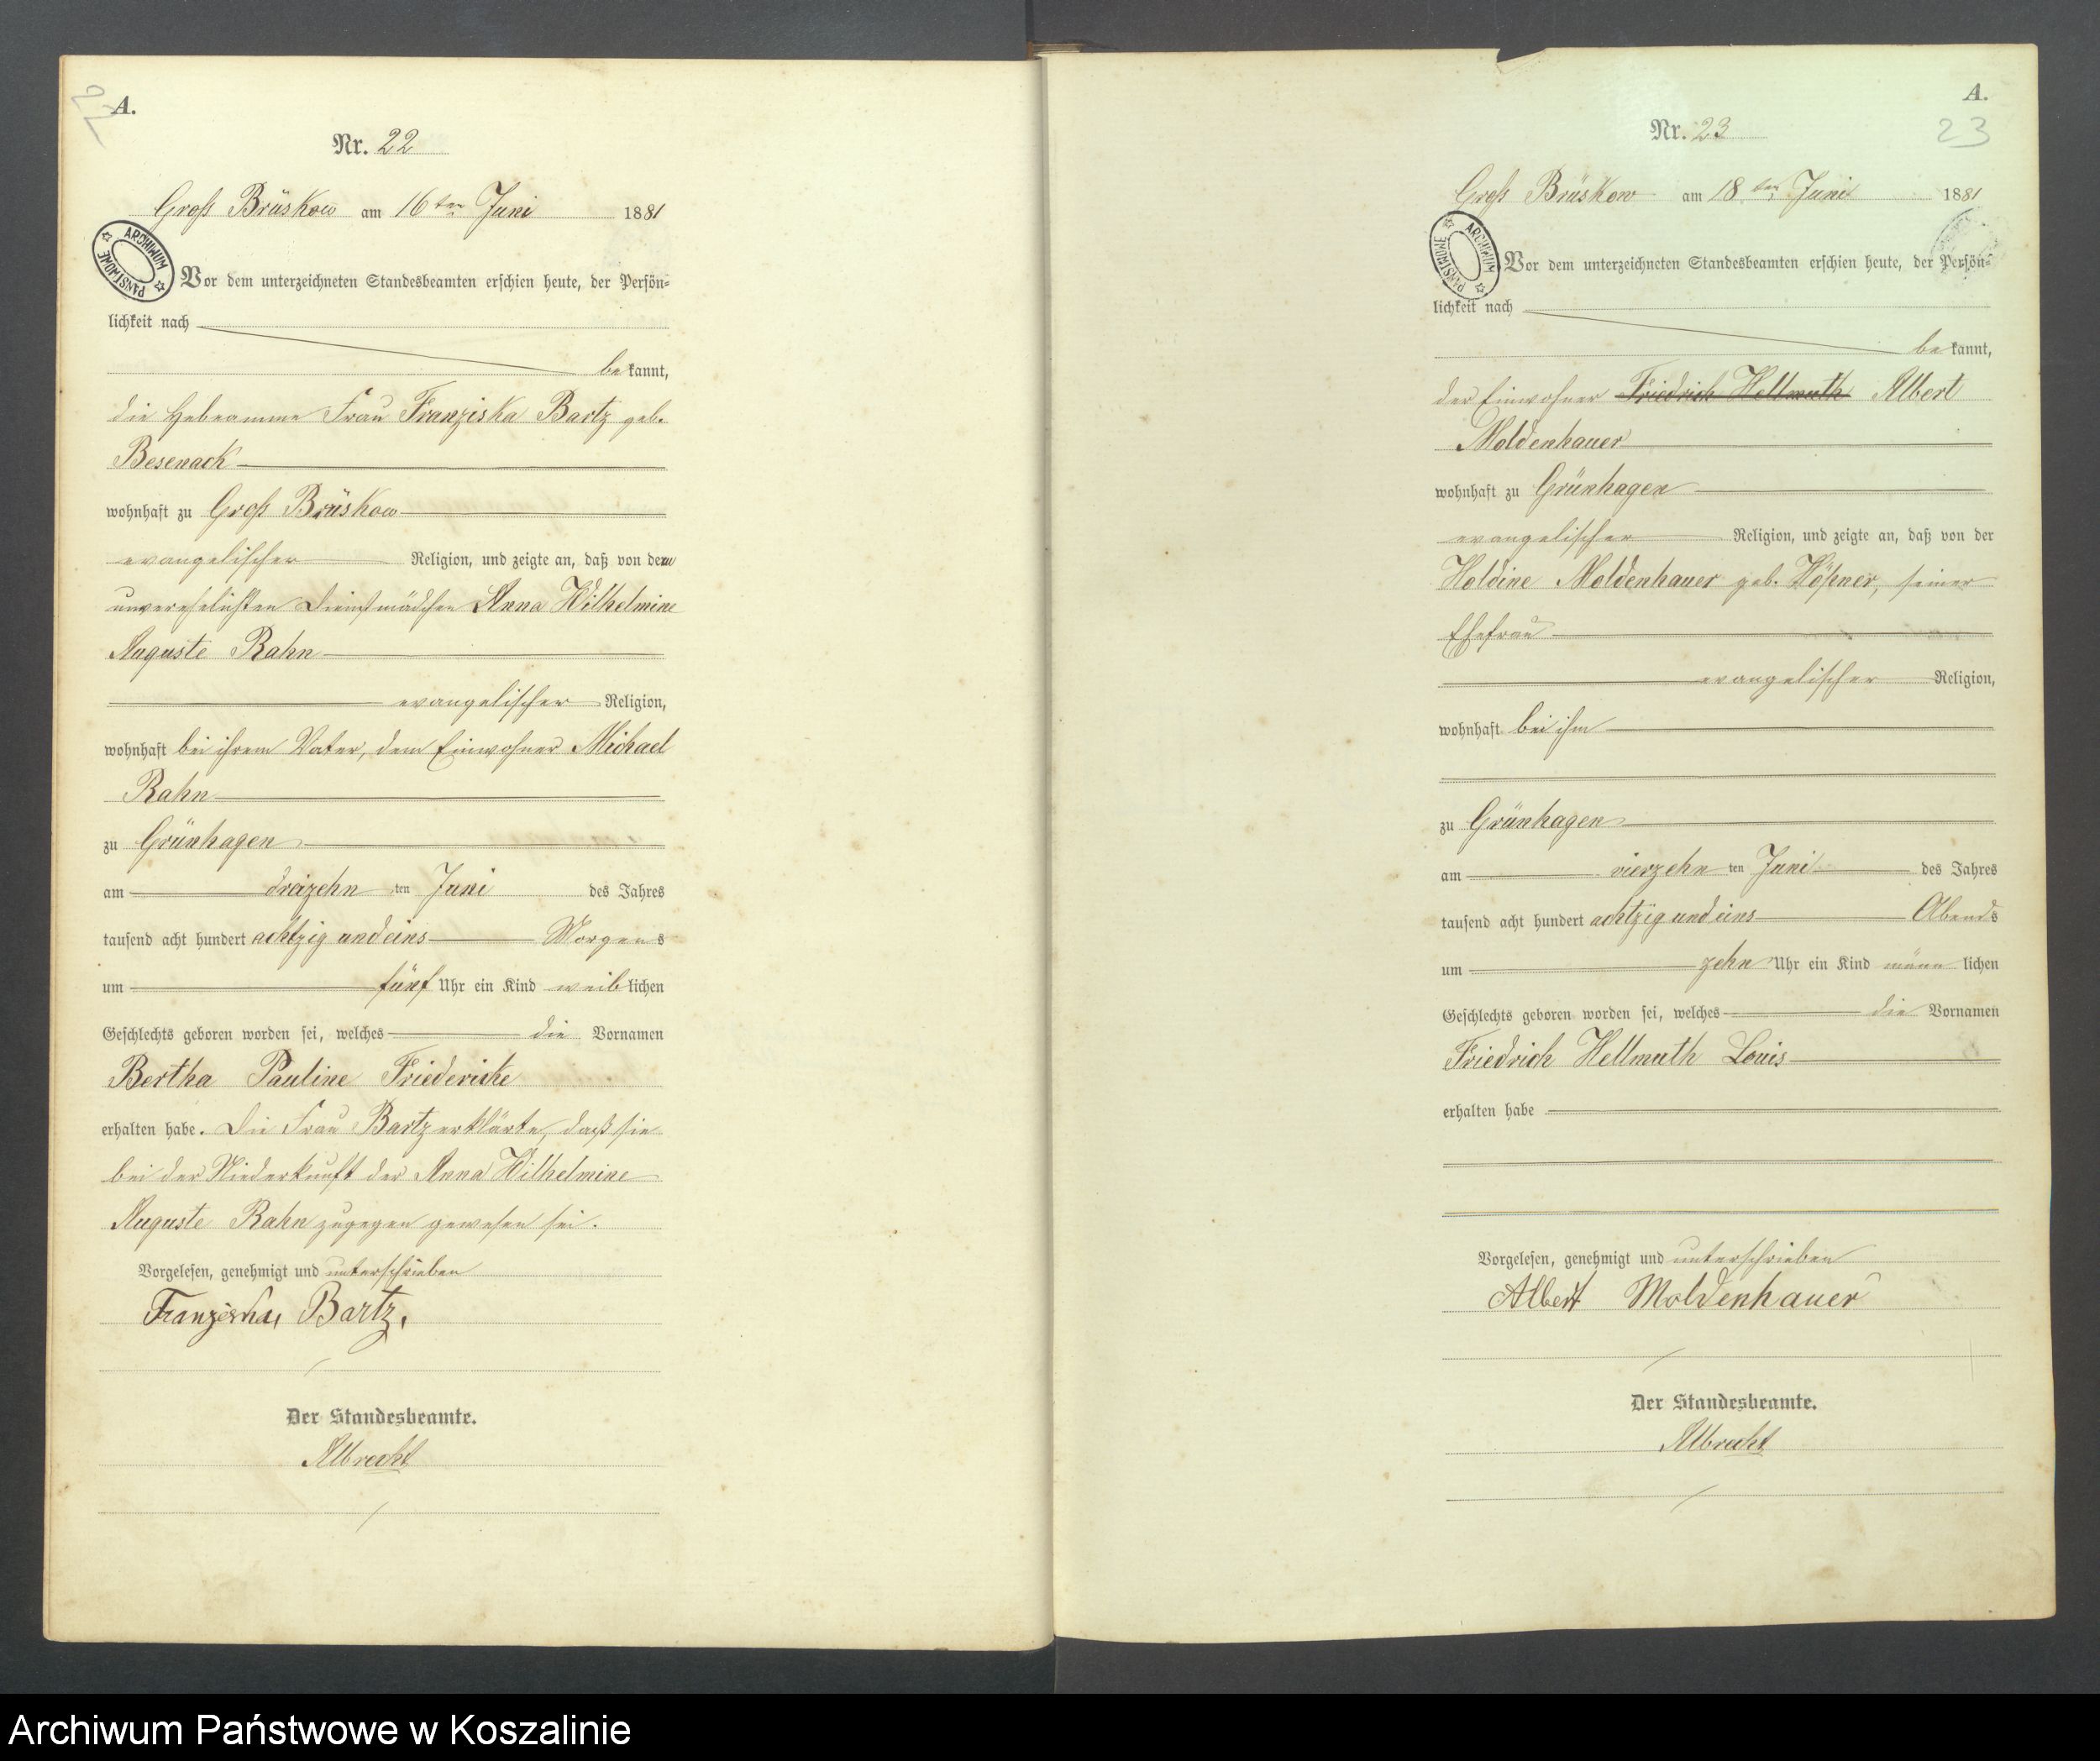 22
A.
Nr. 22
Groß Brüskow am 16ten Juni 1881
ARCHIWUM PAŃSTWOWE
Vor dem unterzeichneten Standesbeamten erschien heute, der Persön-
lichkeit nach
bekannt,
die Hebeamme Frau Franziska Bartz geb.
Besenack
wohnhaft zu Groß Brüskow
evangelischer Religion, und zeigte an, daß von dem
unverehelichten Dienstmädchen Anna Wilhelmine
Auguste Rahn
evangelischer Religion,
wohnhaft bei ihrem Vater, dem Einwohner Michael
Rahn
zu Grünhagen
am dreizehn ten Juni des Jahres
tausend acht hundert achtzig und eins Morgens
um fünf Uhr ein Kind weiblichen
Geschlechts geboren worden sei, welches die Vornamen
Bertha Pauline Friederike
erhalten habe. Die Frau Bartz erklärte, daß sie
bei der Niederkunft der Anna Wilhelmine
Auguste Rahn zugegen gewesen sei.
Vorgelesen, genehmigt und unterschrieben
Franziska Bartz.
Der Standesbeamte.
Albrecht
A.
23
Nr. 23
Groß Brüskow am 18ten Juni 1881
ARCHIWUM PAŃSTWOWE
Vor dem unterzeichneten Standesbeamten erschien heute, der Persön-
lichkeit nach
bekannt,
der Einwohner Friedrich Hellmuth Albert
Moldenhauer
wohnhaft zu Grünhagen
evangelischer Religion, und zeigte an, daß von der
Holdine Moldenhauer geb. seiner
Ehefrau
evangelischer Religion,
wohnhaft bei ihm
zu Grünhagen
am vierzehn ten Juni des Jahres
tausend acht hundert achtzig und eins Abends
um zehn Uhr ein Kind männlichen
Geschlechts geboren worden sei, welches die Vornamen
Friedrich Hellmuth Louis
erhalten habe
Vorgelesen, genehmigt und unterschrieben
Albert Moldenhauer
Der Standesbeamte.
Albrecht
Archiwum Państwowe w Koszalinie